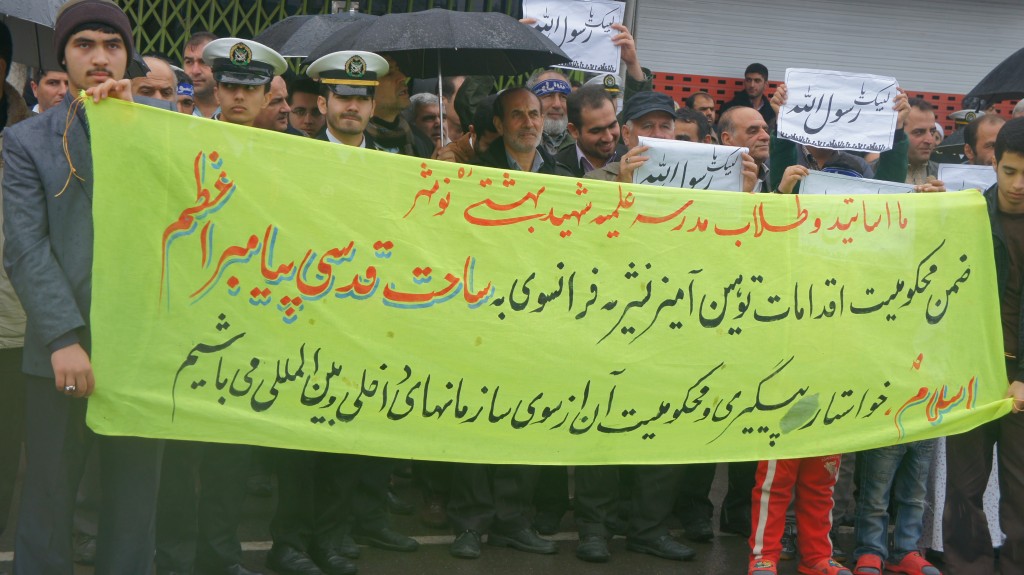 لبیک یا
رسول الله
لبیک یا
رسول الله
لبیک یا
رسول الله
ما اساتید و طلاب مدرسه علمیه شهید بهشتی نوشهر
ضمن محکومیت اقدامات توهین آمیز نشریه فرانسوی به ساحت قدسی پیامبر اعظم
اسلام خواستار پیگیری و محکومیت آن از سوی سازمانهای داخلی و بین المللی می باشیم